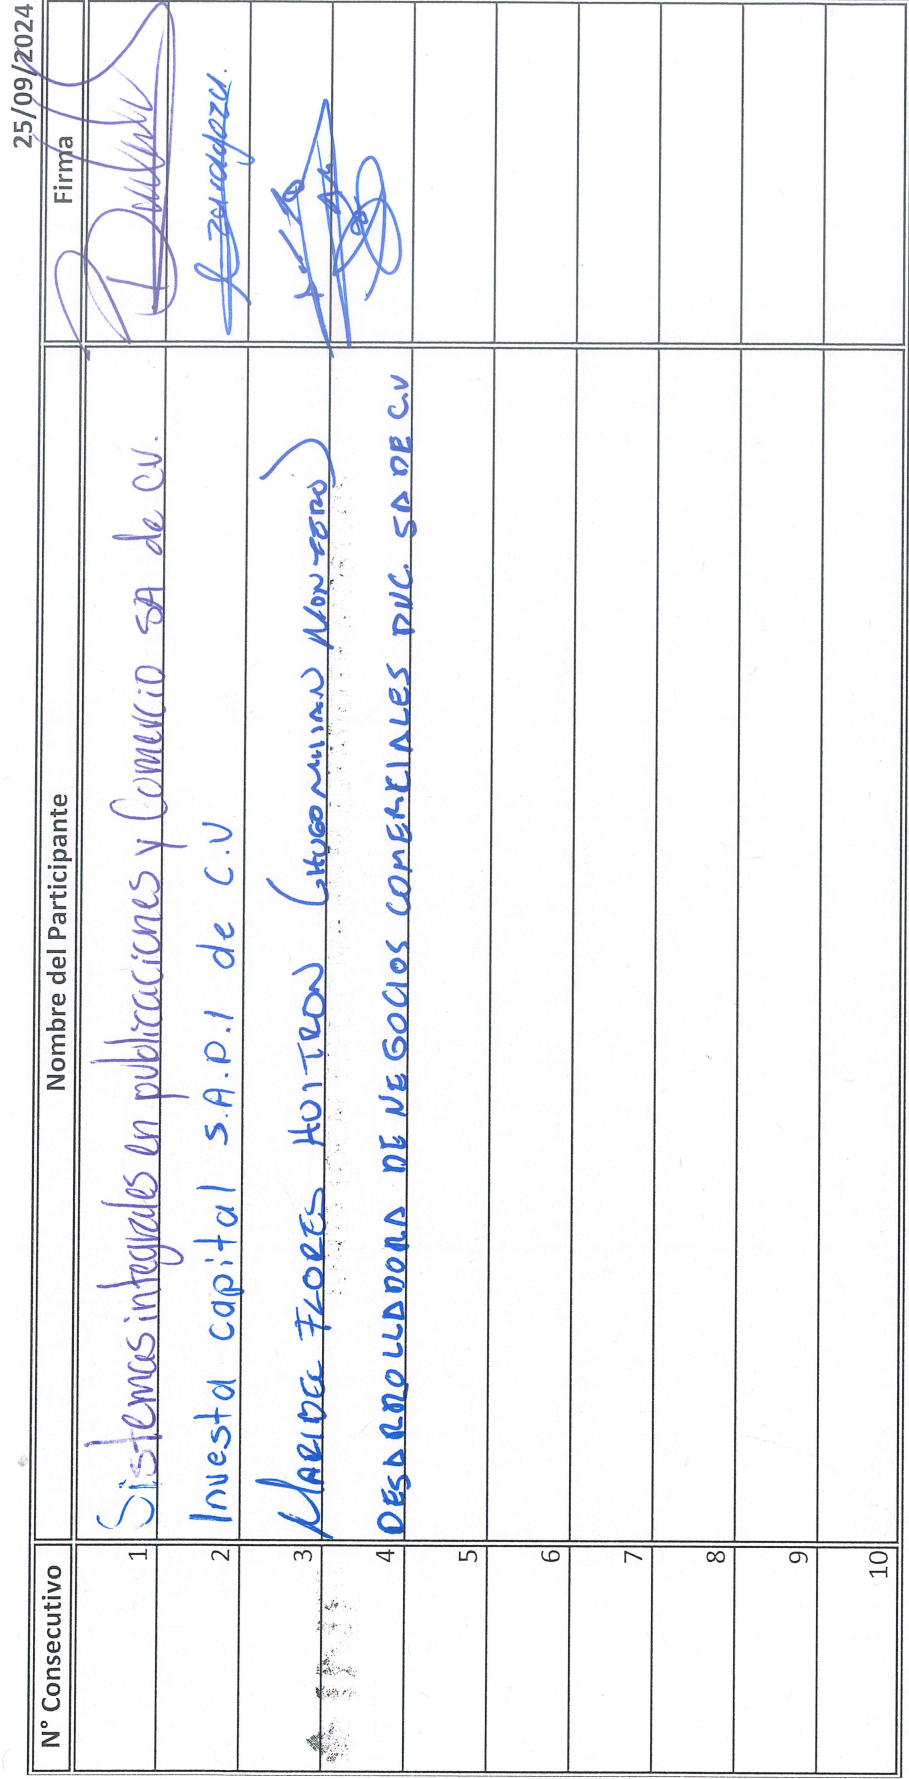 25/09/2024
N° Consecutivo Nombre del Participante Firma
1 Sistemas integrales en publicaciones y Comercio SA de CV.
2 Investa capital S.A.P.I de C.V
3 MARIBEL FLORES HUITRON
4 DESARROLLADORA DE NEGOCIOS COMERCIALES DNC. SA DE C.V
5
6
7
8
9
10